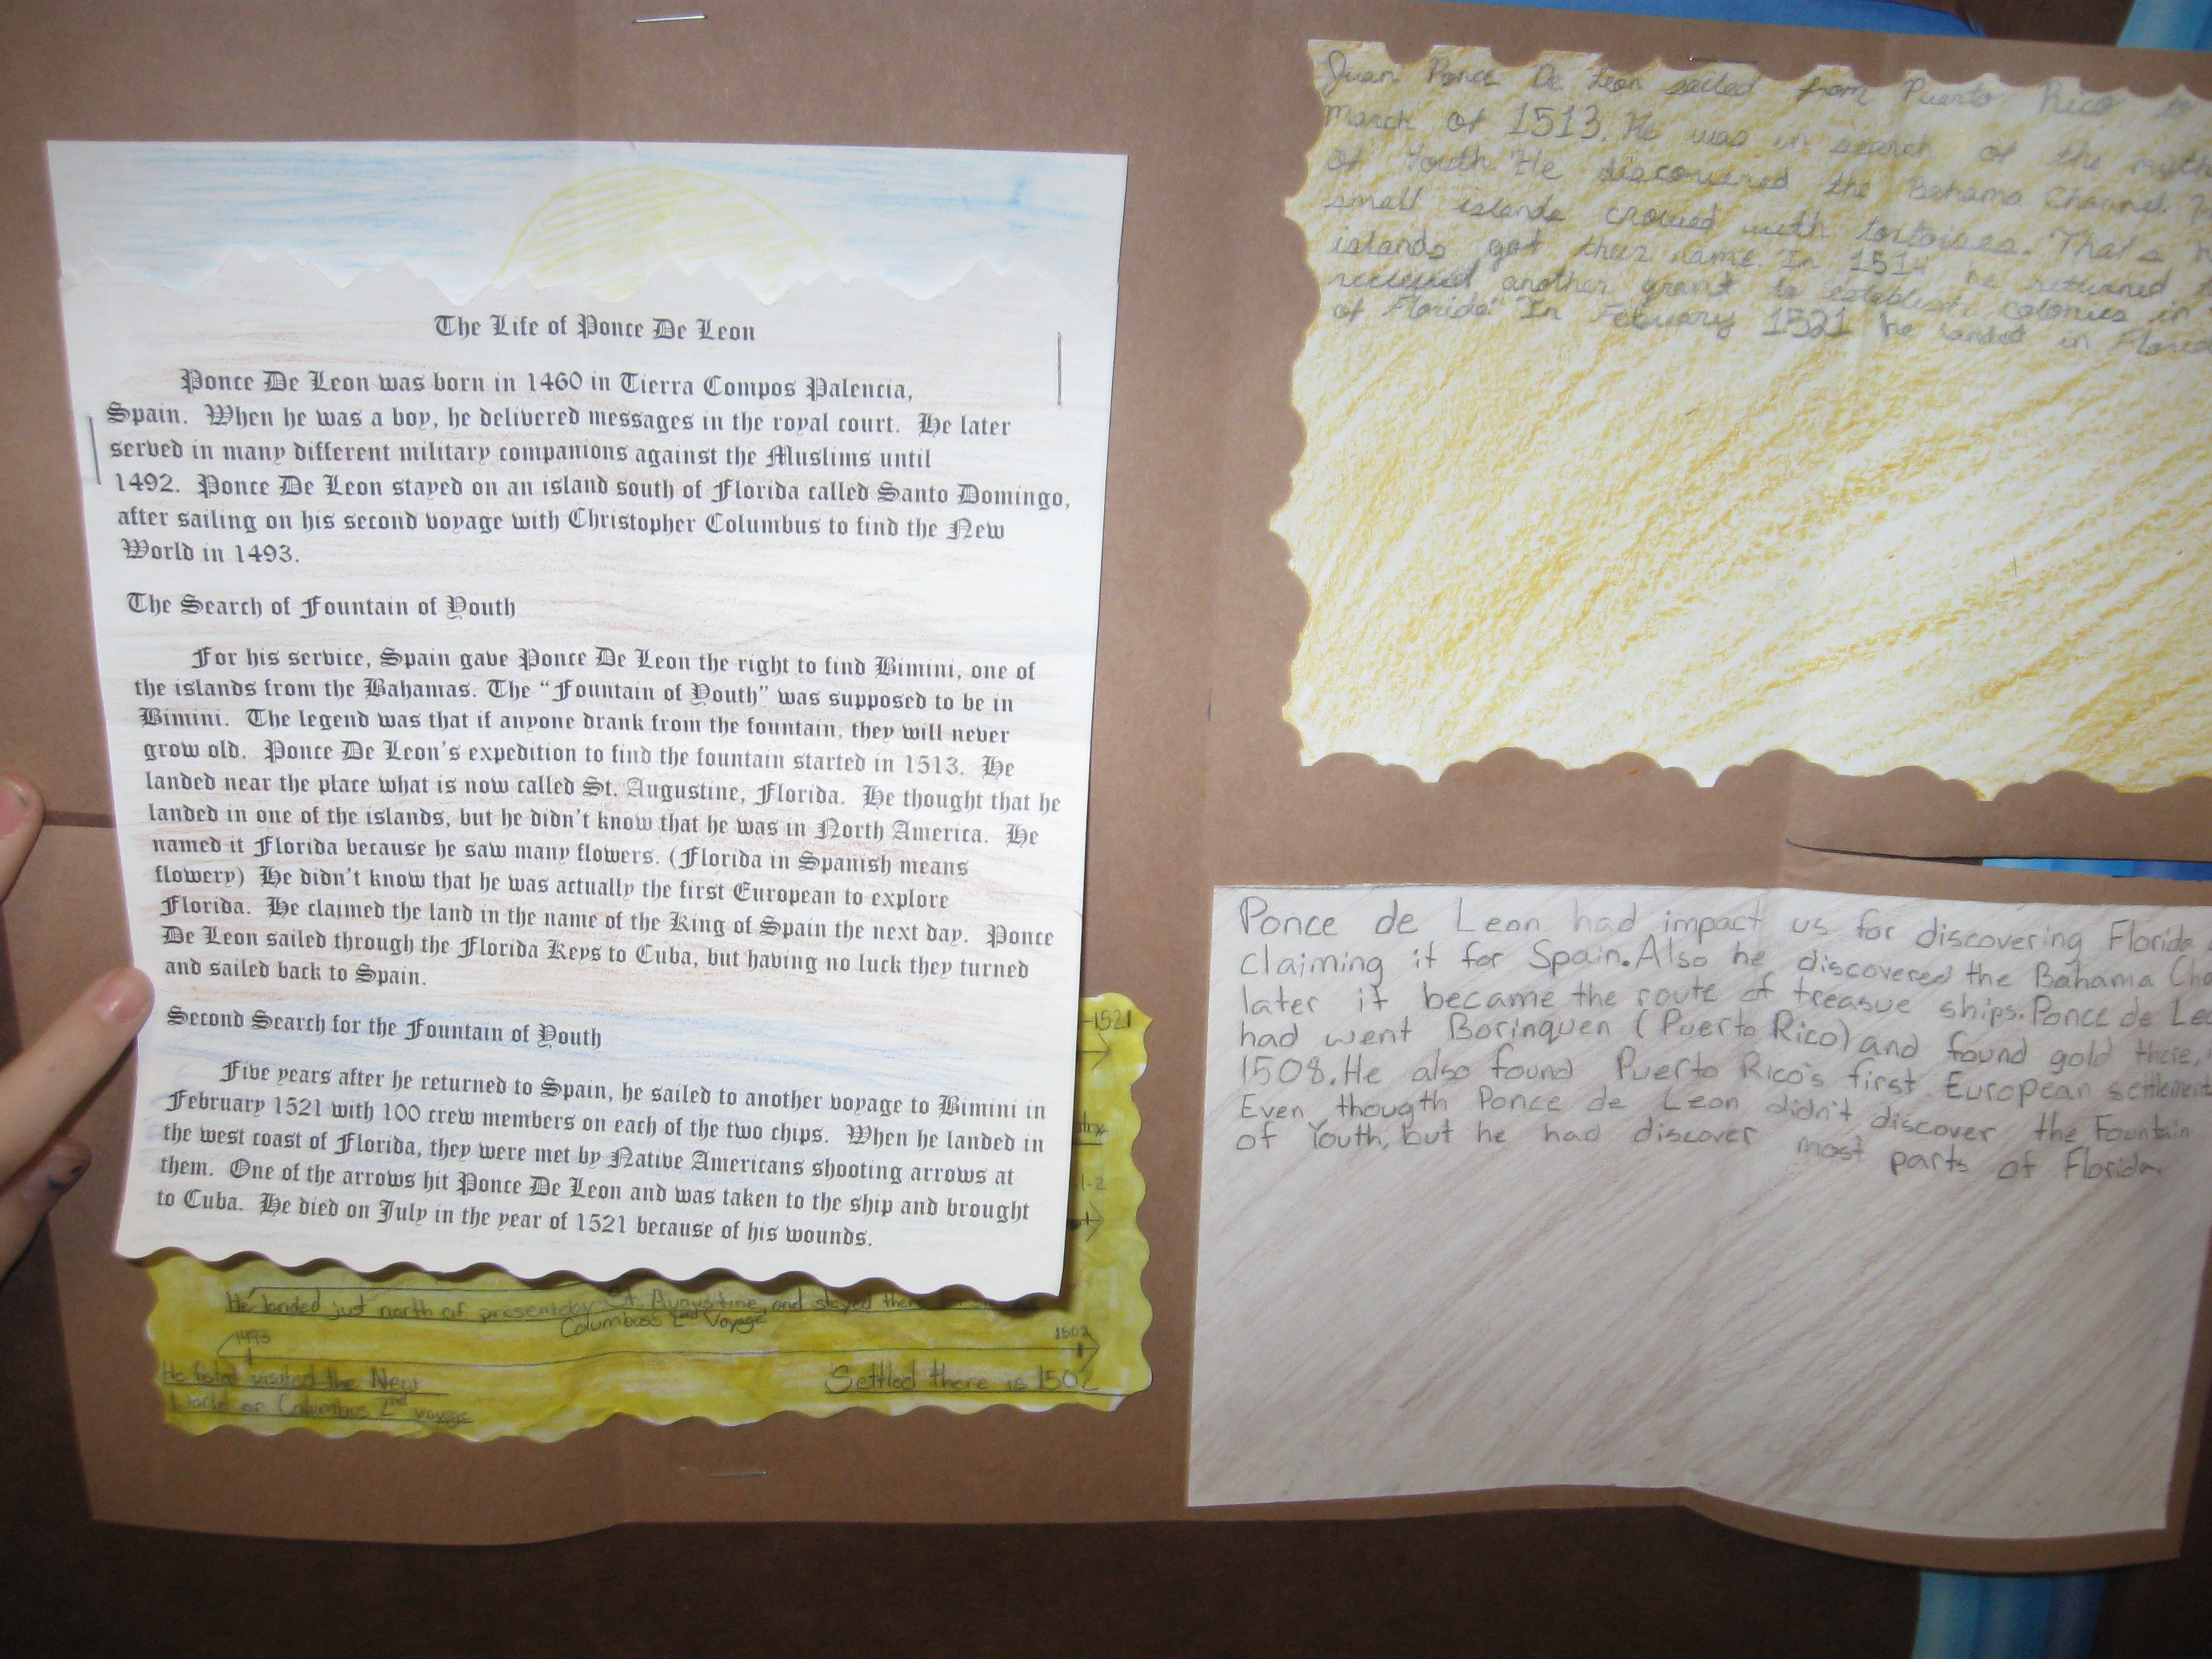 The Life of Ponce De Leon
Ponce De Leon was born in 1460 in Tierra Compos Palencia,
Spain. When he was a boy, he delivered messages in the royal court. He later
served in many different military companions against the Muslims until
1492. Ponce De Leon stayed on an island south of Florida called Santo Domingo,
after sailing on his second voyage with Christopher Columbus to find the New
World in 1493.
The Search of Fountain of Youth
For his service, Spain gave Ponce De Leon the right to find Bimini, one of
the islands from the Bahamas. The “Fountain of Youth” was supposed to be in
Bimini. The legend was that if anyone drank from the fountain, they will never
grow old. Ponce De Leon’s expedition to find the fountain started in 1513. He
landed near the place what is now called St. Augustine, Florida. He thought that he
landed in one of the islands, but he didn’t know that he was in North America. He
named it Florida because he saw many flowers. (Florida in Spanish means
flowery) He didn’t know that he was actually the first European to explore
Florida. He claimed the land in the name of the King of Spain the next day. Ponce
De Leon sailed through the Florida Keys to Cuba, but having no luck they turned
and sailed back to Spain.
Second Search for the Fountain of Youth
Five years after he returned to Spain, he sailed to another voyage to Bimini in
February 1521 with 100 crew members on each of the two chips. When he landed in
the west coast of Florida, they were met by Native Americans shooting arrows at
them. One of the arrows hit Ponce De Leon and was taken to the ship and brought
to Cuba. He died on July in the year of 1521 because of his wounds.
-1521
1-2
He landed just north of presentday St. Augustine, and stayed
Columbus 2nd Voyage
1493 1502
He visited the New Settled there is 1502
World on Columbus 2nd voyage
Juan Ponce De Leon sailed from Puerto Rico to
March of 1513. He was in search of the
of Youth. He discovered the Bahama Channel.
small islands crowed with tortoises. That's
islands got their name. In 1514 he returned
received another grant to establish colonies in
of Florida." In Febuary 1521 he landed in
Ponce de Leon had impact us for discovering Florida
claiming it for Spain. Also he discovered the Bahama
later it became the route of treasue ships. Ponce de
had went Borinquen (Puerto Rico) and found gold there,
1508. He also found Puerto Rico's first European settlement
Even thougth Ponce de Leon didn't discover the Fountain
of Youth, but he had discover most parts of Florida.